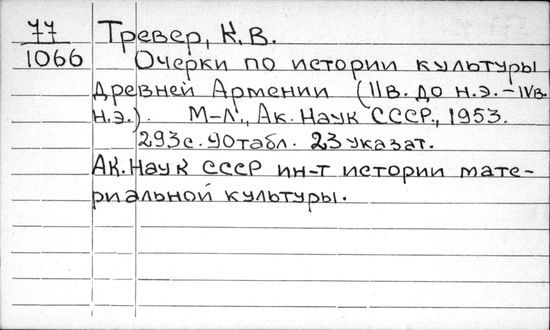 77 Тревер, К.В.
1066 Очерки по истории культуры
древней Армении (IIв. до н.э.-IVв.
н.э.). М-Л., Ак. Наук СССР, 1953.
293с. 90табл. 23 указат.
Ак. Наук СССР ин-т истории мате-
риальной культуры.